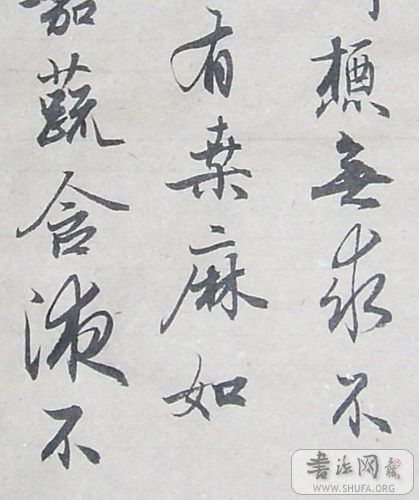 無求不
有桒麻如
嘉蔬含液不
書法网
WWW.SHUFA.ORG